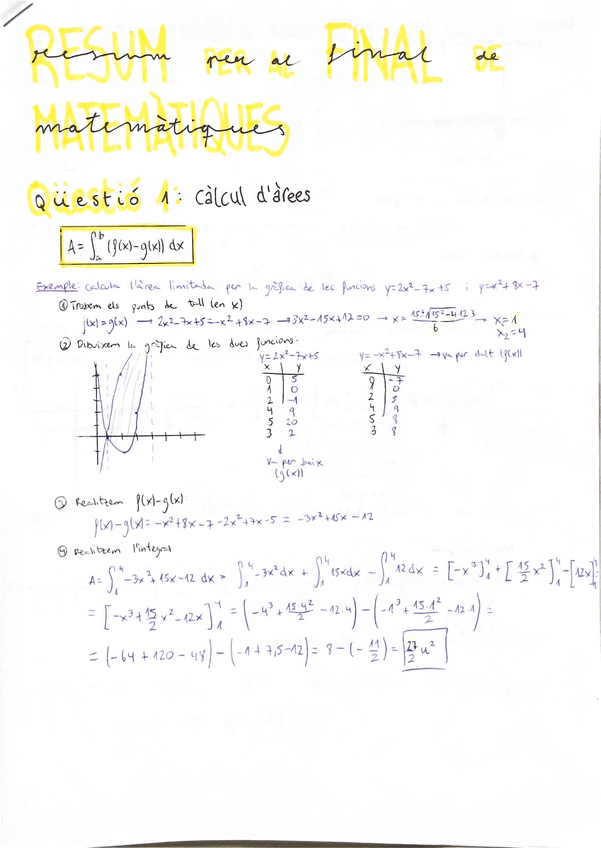 RESUM PER AL FINAL DE
MATEMÀTIQUES
Qüestió 1: Càlcul d'àrees
A = ∫ₐᵇ (f(x)-g(x)) dx
Exemple: calcula l'àrea limitada per la gràfica de les funcions y=2x²-7x+5 i y=-x²+8x-7
① Trobem els punts de tall (en x)
f(x)=g(x) → 2x²-7x+5=-x²+8x-7 → 3x²-15x+12=0 → x = (15±√(15²-4·12·3))/6 → x₁=1
x₂=4
② Dibuixem la gràfica de les dues funcions:
y=2x²-7x+5 y=-x²+8x-7 → va per dalt (f(x))
x y x y
0 5 0 -7
1 0 1 0
2 -1 2 5
4 9 4 9
5 20 5 8
3 2 3 8
↓
va per baix
(g(x))
③ Realitzem f(x)-g(x)
f(x)-g(x)=-x²+8x-7-2x²+7x-5 = -3x²+15x-12
④ Realitzem l'integral
A = ∫₁⁴ -3x²+15x-12 dx = ∫₁⁴ -3x² dx + ∫₁⁴ 15x dx - ∫₁⁴ 12 dx = [-x³]₁⁴ + [15/2 x²]₁⁴ - [12x]₁⁴ =
= [-x³+15/2 x²-12x]₁⁴ = (-4³+15·4²/2-12·4) - (-1³+15·1²/2-12·1) =
= (-64+120-48) - (-1+7,5-12) = 8-(-11/2) = 27/2 u²